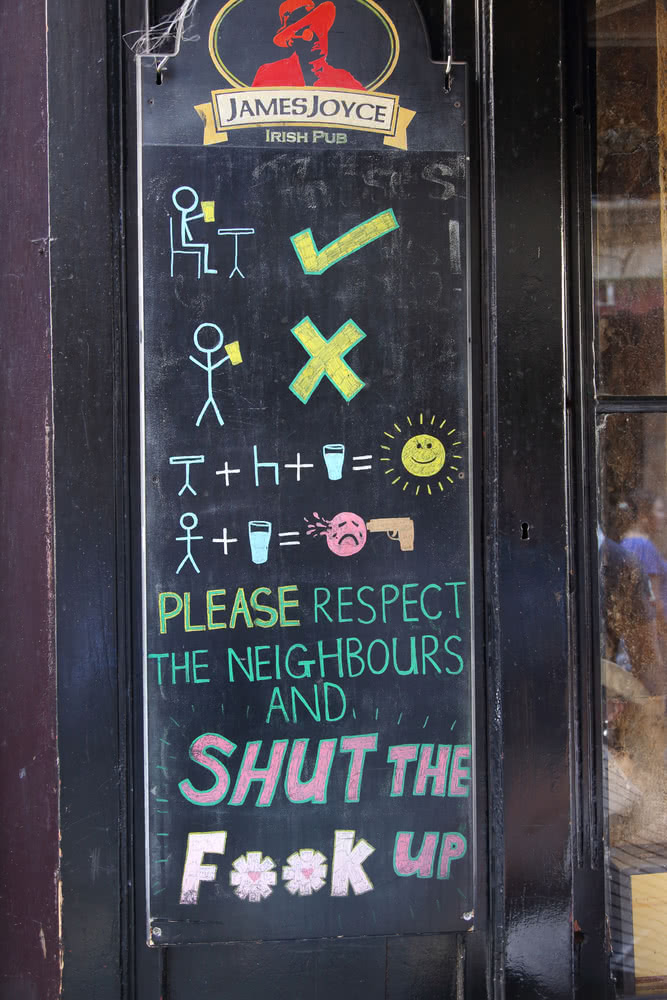 JAMES JOYCE
IRISH PUB
+ + =
+ =
PLEASE RESPECT
THE NEIGHBOURS
AND
SHUT THE
F**K UP